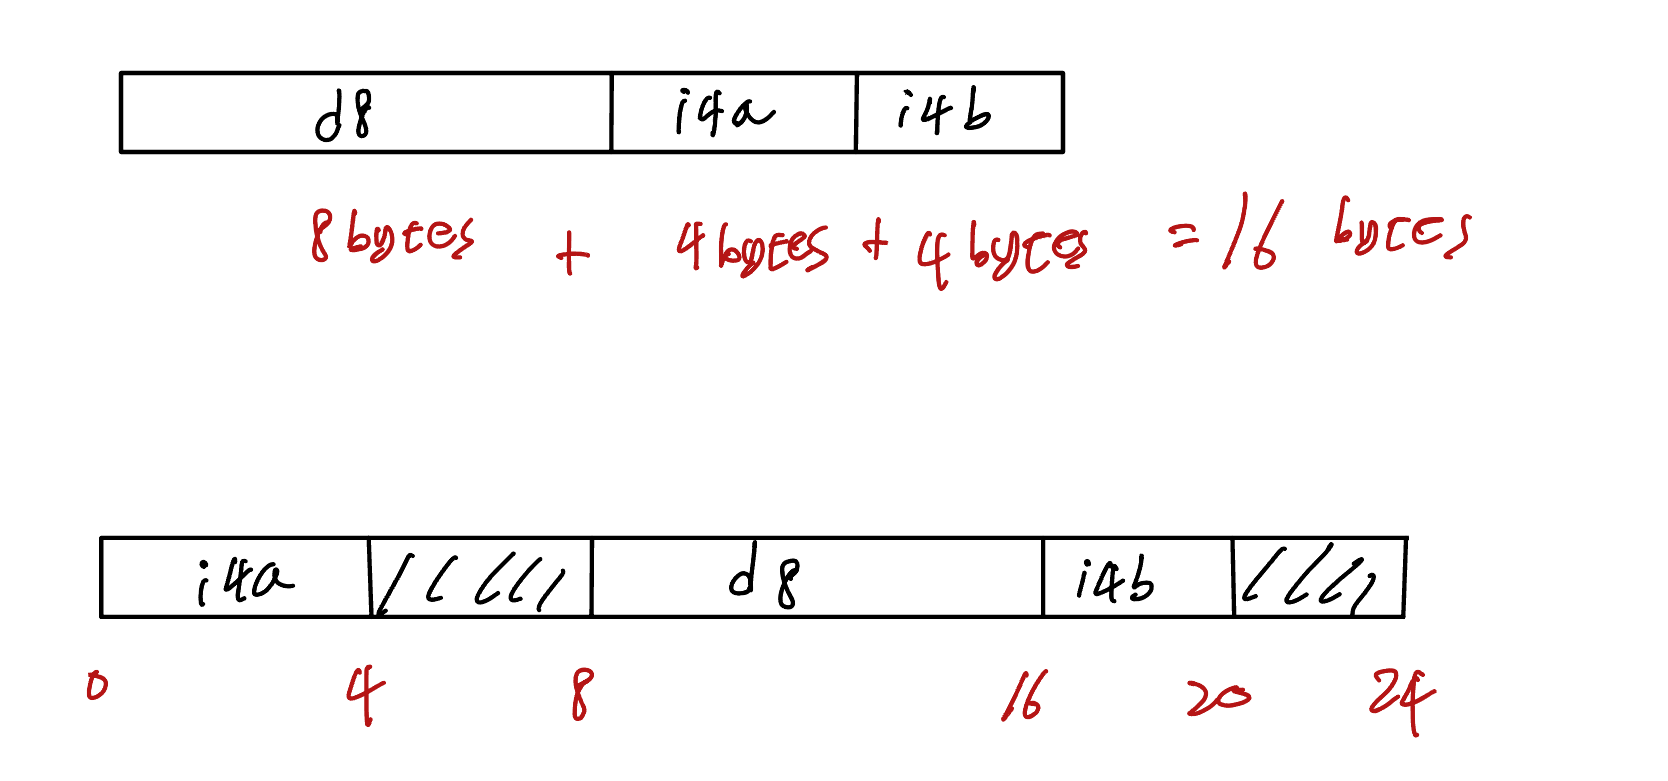 d8 i4a i4b
8 bytes + 4 bytes + 4 bytes = 16 bytes
i4a d8 i4b
0 4 8 16 20 24